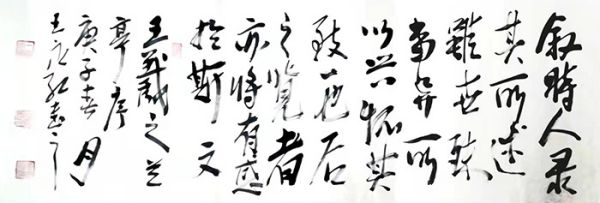 叙時人录
其所述
雖世殊
事异所
以兴怀其
致一也后
之覽者
亦将有感
於斯文
王羲之兰
亭序
庚子春月
王